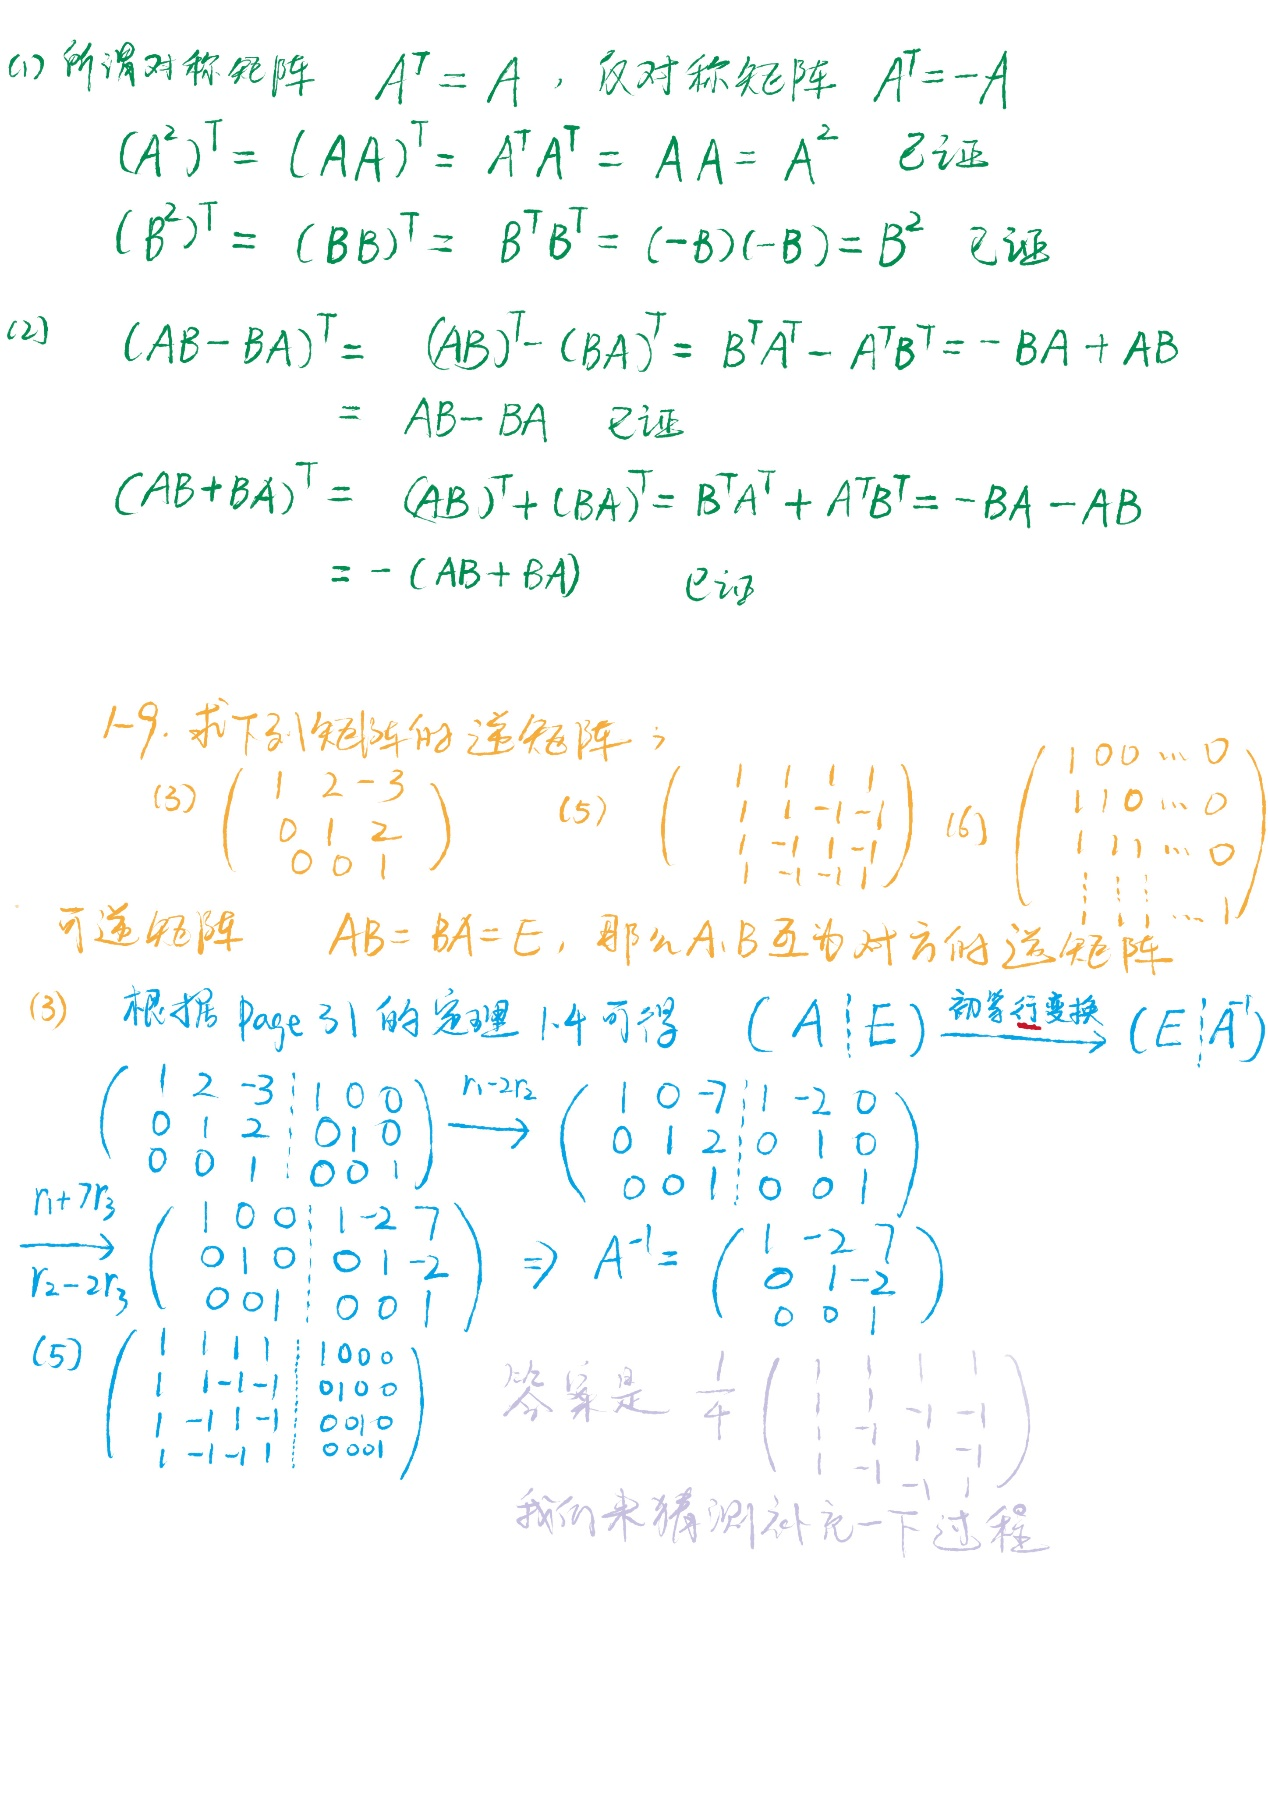 (1) 所谓对称矩阵 Aᵀ = A , 反对称矩阵 Aᵀ = -A
(A²)ᵀ = (AA)ᵀ = AᵀAᵀ = AA = A² 已证
(B²)ᵀ = (BB)ᵀ = BᵀBᵀ = (-B)(-B) = B² 已证
(2) (AB-BA)ᵀ = (AB)ᵀ-(BA)ᵀ = BᵀAᵀ - AᵀBᵀ = -BA + AB
= AB-BA 已证
(AB+BA)ᵀ = (AB)ᵀ+(BA)ᵀ = BᵀAᵀ + AᵀBᵀ = -BA - AB
= -(AB+BA) 已证
1-9. 求下列矩阵的逆矩阵;
(3) ( 1 2 -3
0 1 2
0 0 1 )
(5) ( 1 1 1 1
1 1 -1 -1
1 -1 1 -1
1 -1 -1 1 )
(6) ( 1 0 0 … 0
1 1 0 … 0
1 1 1 … 0
⋮ ⋮ ⋮
1 1 1 … 1 )
可逆矩阵 AB = BA = E, 那么A、B互为对方的逆矩阵
(3) 根据 Page 31 的定理 1.4 可得 (A ┆ E) 初等行变换 → (E ┆ A⁻¹)
( 1 2 -3 ┆ 1 0 0
0 1 2 ┆ 0 1 0
0 0 1 ┆ 0 0 1 )
r₁-2r₂ →
( 1 0 -7 ┆ 1 -2 0
0 1 2 ┆ 0 1 0
0 0 1 ┆ 0 0 1 )
r₁+7r₃
→
r₂-2r₃
( 1 0 0 ┆ 1 -2 7
0 1 0 ┆ 0 1 -2
0 0 1 ┆ 0 0 1 )
⇒ A⁻¹ = ( 1 -2 7
0 1 -2
0 0 1 )
(5) ( 1 1 1 1 ┆ 1 0 0 0
1 1 -1 -1 ┆ 0 1 0 0
1 -1 1 -1 ┆ 0 0 1 0
1 -1 -1 1 ┆ 0 0 0 1 )
答案是 1/4 ( 1 1 1 1
1 1 -1 -1
1 -1 1 -1
1 -1 -1 1 )
我们来猜测补充一下过程